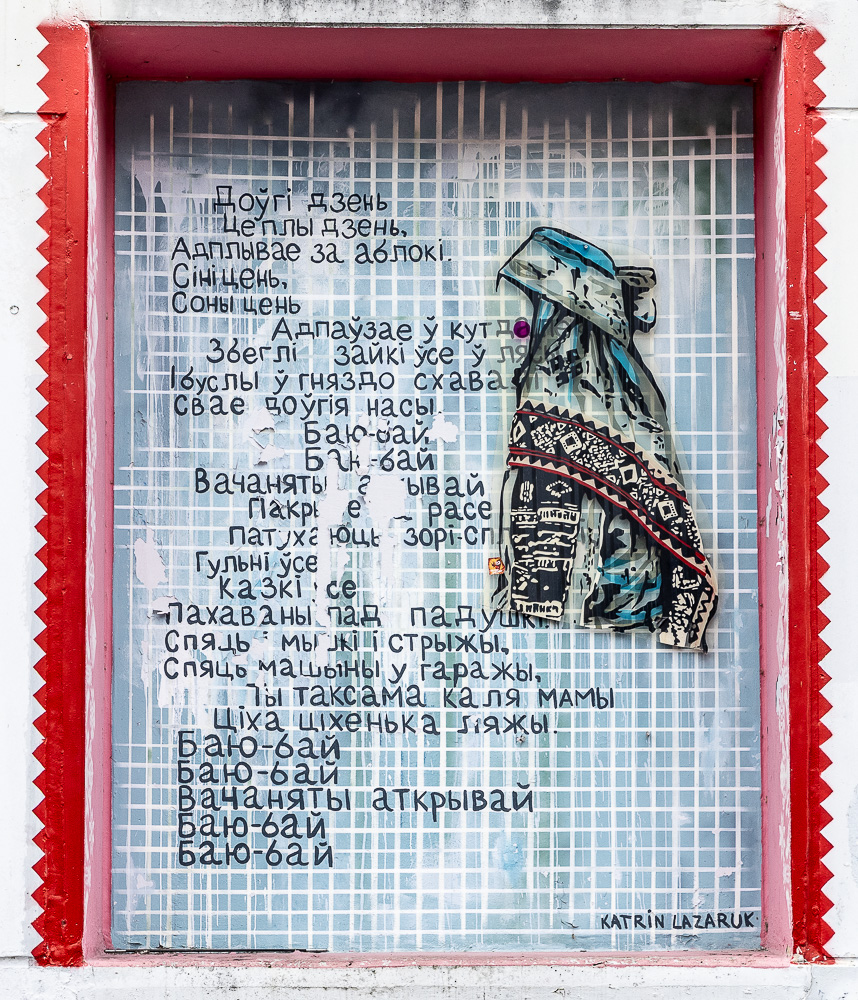 Доўгі дзень
Цёплы дзень,
Адплывае за аблокі.
Сініцень,
Соныцень
Адпаўзае ў кут
Збеглі зайкі ўсе ў
Ібуслы ў гняздо схавалі
свае доўгія насы.
Баю-бай,
Баю-бай
Вачаняты
расе
зорі
Гульні ўсе
Казкі ўсе
Пахаваны пад падушкі
Спяць і мышкі і стрыжы,
Спяць машыны у гаражы,
Ты таксама каля мамы
Ціха ціхенька ляжы.
Баю-бай
Баю-бай
Вачаняты аткрывай
Баю-бай
Баю-бай
KATRIN LAZARUK